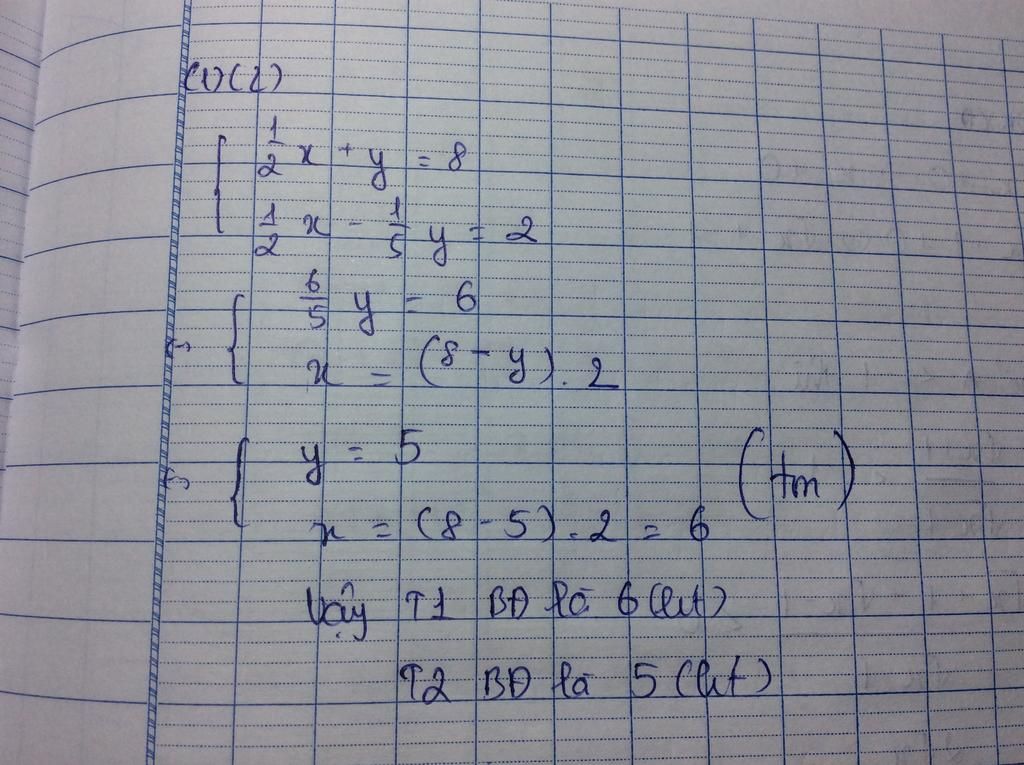 (1)(2)
{ 1/2 x + y = 8
1/2 x - 1/5 y = 2
⇔ { 6/5 y = 6
x = (8 - y) . 2
⇔ { y = 5 (tm)
x = (8 - 5) . 2 = 6
Vậy T1 BĐ là 6 (lít)
T2 BĐ là 5 (lít)